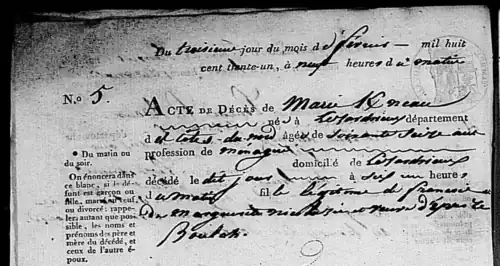 Du troisieme jour du mois de février — mil huit
cent trente-un, à neuf heures du matin
N.º 5.
ACTE DE DÉCÈS de Marie
né à Lezardrieux département
des Côtes-du-nord âgée de soixante seize ans
profession de menagere
domicilié de Lezardrieux
décédé le dit jour à six heures
du matin fil legitime de francois
de marguerite et veuve d'
* Du matin ou
du soir.
On énoncera dans
ce blanc, si le dé-
funt est garçon ou
fille, marié, veuf,
ou divorcé: rappe-
lez autant que pos-
sible, les noms et
prénoms des père et
mère du décédé, et
ceux de l'autre é-
poux.